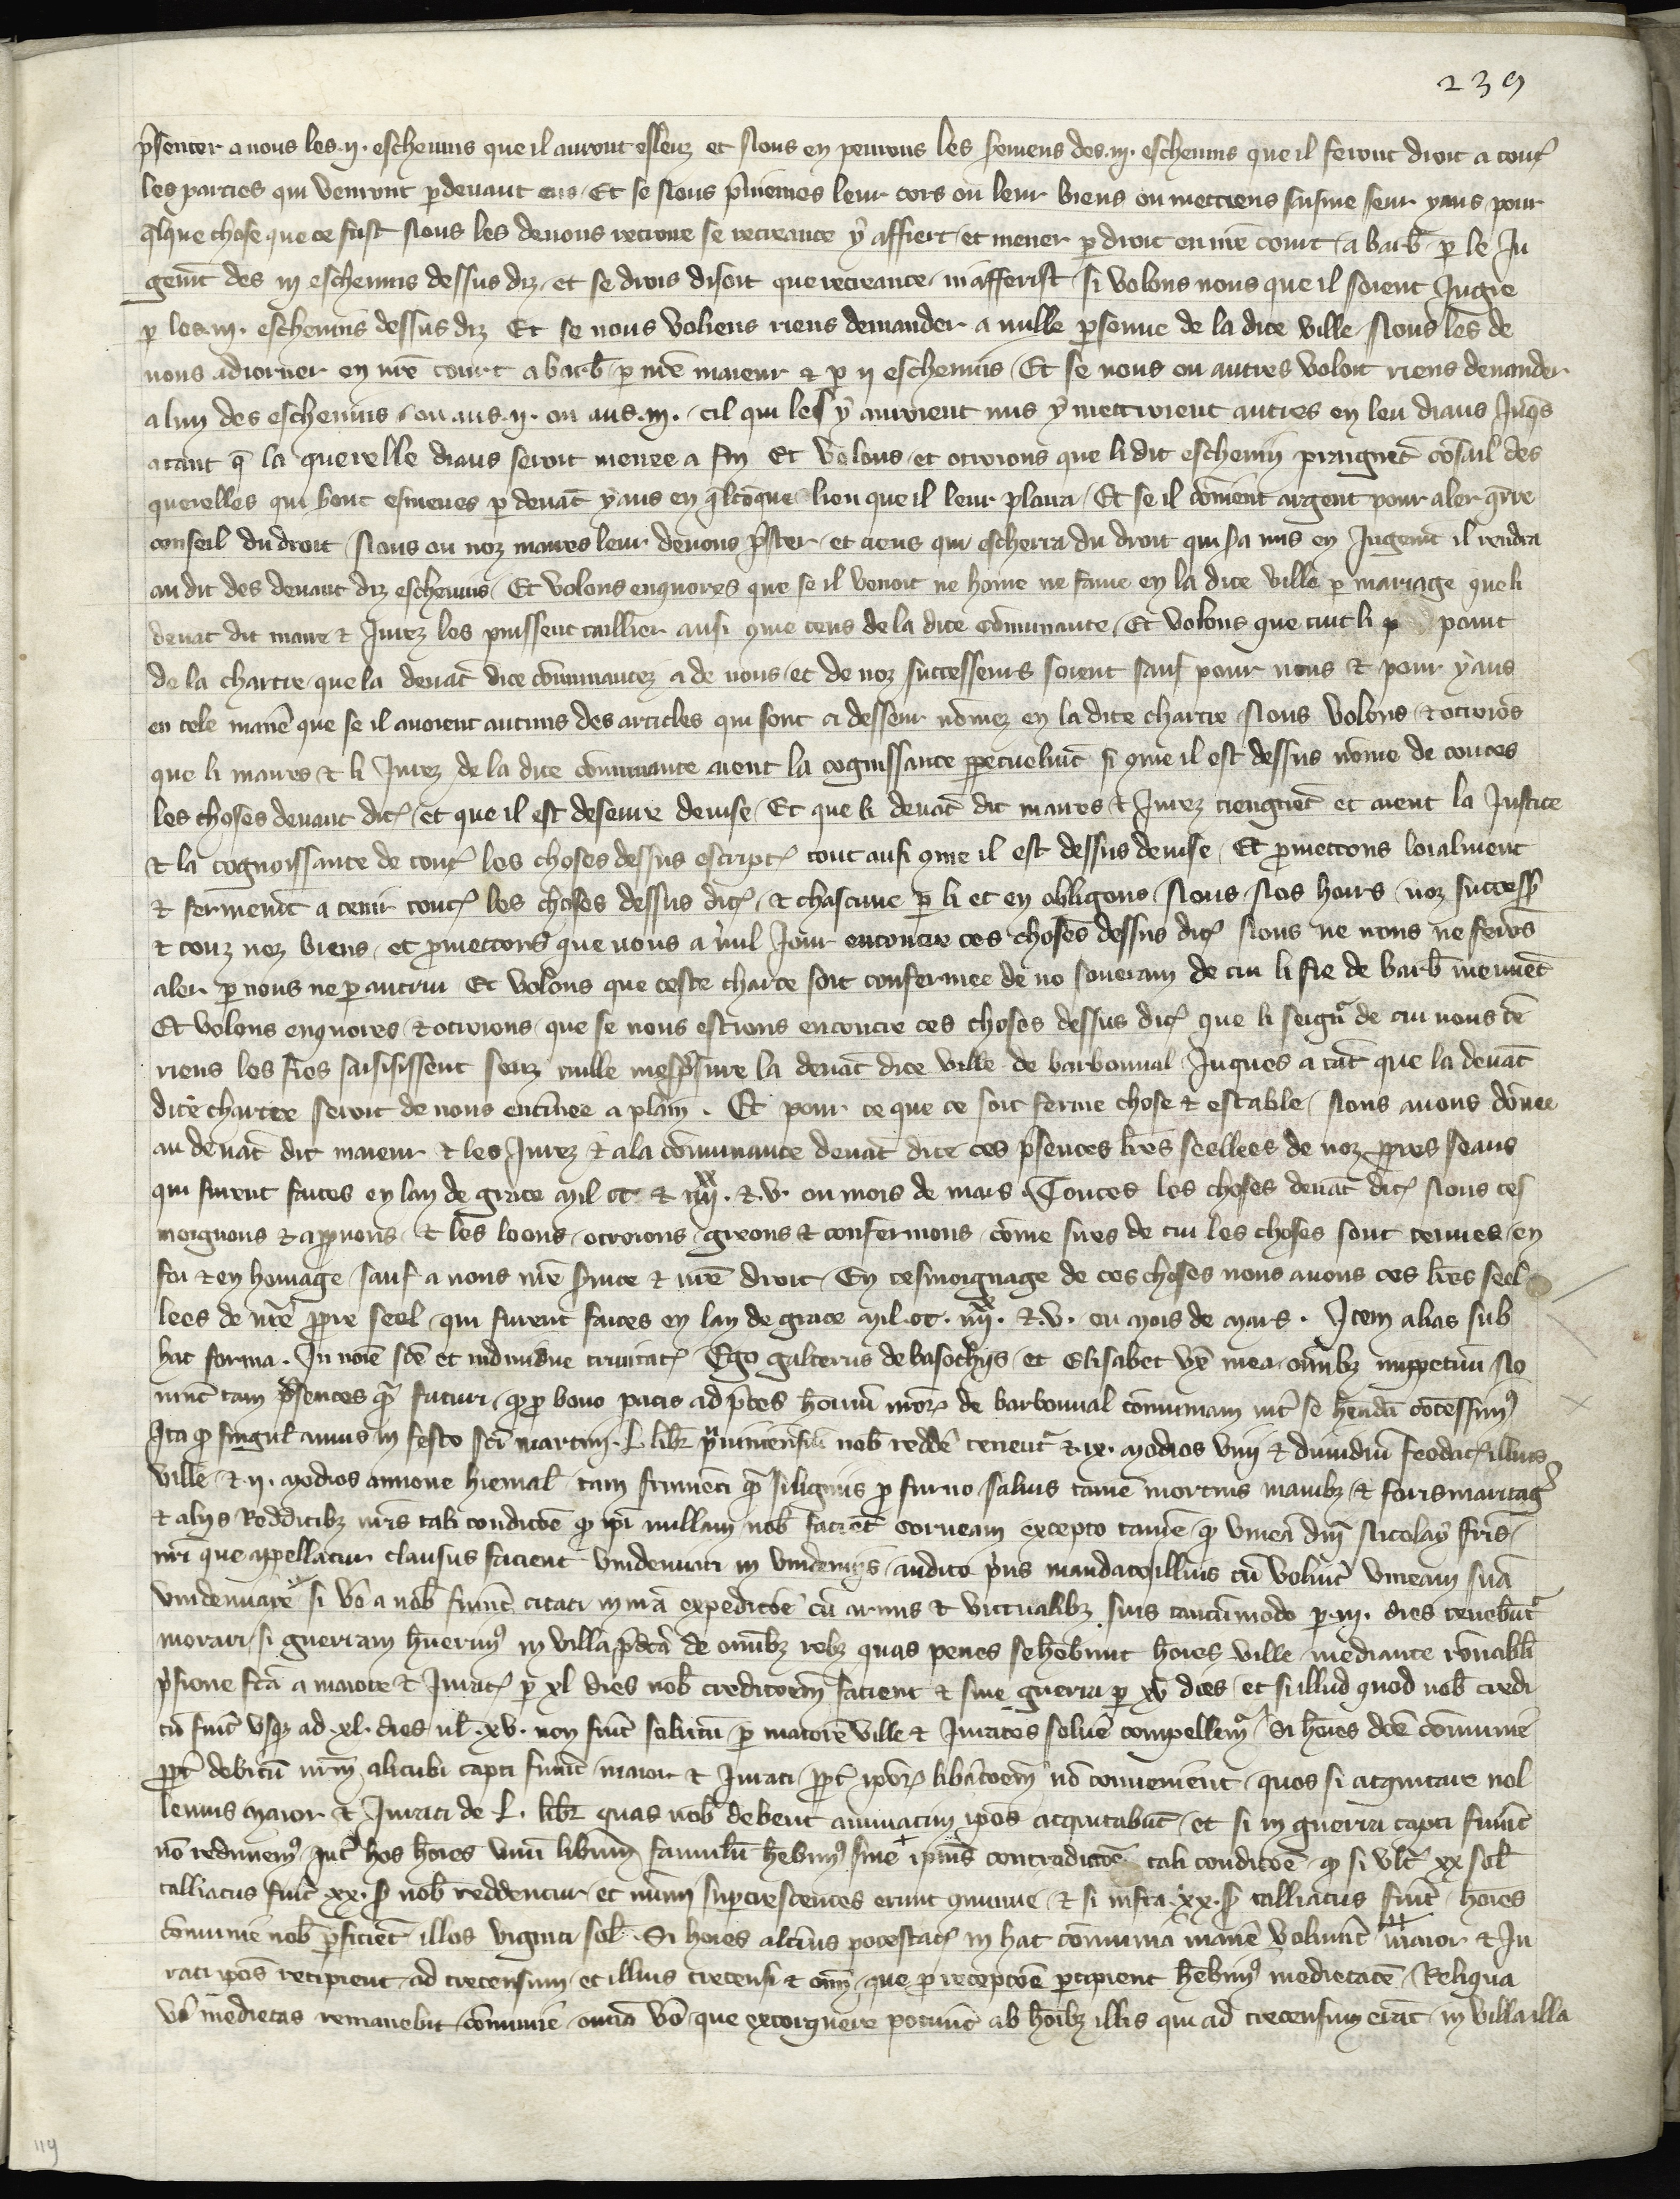 239
p̄senter a nous les .ij. escheuins que il auront esleuz et Nous en penrons les seremens des .iij. escheuins que il feront droit a tout̄
les parties qui venront p̱deuant eus. Et se Nous p̄niemes leur cors ou leur biens ou mettiens saisine seur yaus pour
q̄lque chose que ce fust Nous les deuons recroire se recreance ẏ affiert et mener p̱ droit en nr̄e court a barb̄ p̱ le Ju
gem̄t des iij escheuins dessus diz et se drois disoit que recreance ni afferist si volons nous que il soient Jugie
p̱ les .iij. escheuins dessus diz Et se nous voliens riens demander a nulle p̱sonne de la dite ville Nous les de
uons adiorner en nr̄e court a barb̄ p̱ nr̄e maieur & p̱ ij escheuins Et se nous ou autres voloit riens demander
a lun des escheuins ou aus .ij. ou aus .iij. cil qui les ẏ auroient mis ẏ mettroient autres en leu diaus Juq̄s
atant q̄ la querelle diaus seroit menee a fin Et volons et otroions que li dit escheuin praignēt cōsail des
querelles qui sont esmeues p̱ deuāt ẏaus en q̄lcōque lieu que il leur plaira Et se il cōuient argent pour aler q̄rre
conseil du droit Nous ou noz maires leur deuons p̄ster et ciens qui escherra du droit qui sa mis en Jugem̄t il rendra
au dit des deuant diz escheuins Et volons enquores que se il venoit ne home ne fame en la dite ville p̱ mariage que li
deuāt dit maire & Jurez les puissent taillier ausi 9me ceus de la dite cōmunaute Et volons que tuit li point
de la chartre que la deuāt dite cōmunautez a de nous et de noz successeurs soient sauf pour nous & pour ẏaus
en tele manē que se il auoient aucuns des articles qui sont ci desseur nōmez en la dite chartre Nous volons & otroiōs
que li maires & li Jurez de la dite cōmunaute aient la cognissance p̱petuelm̄t si 9me il est dessus nōme de toutes
les choses deuant dit̄ et que il est deseure deuise Et que li deuāt dit maires & Jurez tiengnēt et aient la Justice
& la cognoissance de tout̄ les choses dessus escript̄ tout ausi 9me il est dessus deuise Et p̱mettons loialment
& fermem̄t a tenir tout̄ les choses dessus dit̄ & chascune p̱ li et en obligons Nous Nos hoirs noz success̄
& touz noz biens et p̱mettons que nous a nul Jour encontre ces choses dessus dit̄ Nous ne irons ne ferōs
aler p̱ nous ne p̱ autrui Et volons que ceste charte soit confermee de no souerain de cui li fie de barb̄ meuuēt
Et volons enquores & otroions que se nous estions encontre ces choses dessus dit̄ que li seign̄r de cui nous tē
riens les fies saisisissent senz nulle mesp̄sure la deuāt dite ville de barbonual Juques a tāt que la deuāt
dite chartre seroit de nous enterinee a plain. Et pour ce que ce soit ferme chose & estable Nous auons dōnee
au deuāt dit maieur & les Jurez & a la cōmunaute deuāt dite ces p̄sentes lr̄es seellees de noz p̱pres seaus
qui furent faites en lan de grace mil cc & iiij^xx. & .v. ou mois de mars Toutes les choses deuāt dit̄ Nous tes
moignons & app̱uons & les loons otroions greons & confermons cōme sires de cui les choses sont tenues en
foi & en homage sauf a nous nr̄e seruice & nr̄e droit En tesmoignage de ces choses nous auons ces lr̄es seel
lees de nr̄e p̱pre seel qui furent faites en lan de grace mil .cc. iiij^xx. & .v. ou mois de mars. Item alias sub
hac forma. In noīe sc̄e et indiuidue trinitat̄ Ego galterus de basochijs et Elisabet vx̄ mea om̄ibz imp̱petuū No
uint tam p̄sentes q̄ futuri q̱ p̱ bono pacis ad p̄ces hoīm nr̄or̄ de barbonual cōmuniam int̄ se hēndā cōcessim9
Ita q̱ singul̄ annis in festo sc̄i martini .L libr̄ p̱uiniensiū nob̄ redd̄e tenent̄r & ix. modios vini & dimidiū feodat̄ illius
ville & ij. modios annone hiemal̄ tam frumēti q̄ siliginis p̱ furno saluis tamē mortuis manibz & forismaritaḡ
& alijs Redditibz nr̄is tali condicōe q̱ ip̄i nullam nob̄ faciēt corueam excepto tamē q̱ vineā dn̄i Nicolaẏ fr̄is
nr̄i que appellatur clausus facient vindemiari in vindemijs audito p̱us mandato illius cū voluīt vineam suā
vindemiare si v̄o a nob̄ fuerīt citati in nr̄a expedicōe cū armis & victualibz suis tantūmodo p̱ .iij. dies tenebūt̄r
morari si guerram hūerim9 in villa p̄dc̄a de om̄ibz rebz quas penes se hēbunt hoīes ville mediante rōnabili
p̄sione fc̄a a maiore & Jurat̄ p̱ xl dies nob̄ creditoem̄ facient & sine guerra p̱ xv dies et si illud quod nob̄ credi
tū fuīt vsq̱ ad .xl. dies ul̄ .xv. non fuīt solutū p̱ maiorē ville & Juratos solūe compellem̄r Si hoīes dc̄e cōmunie
pp̄t debitū nr̄m alicubi capti fuīnt maior & Jurati pp̄t ip̄or̄ lib̄acōem̄ nō conuenient quos si acquitare nol
lemus maior & Jurati de .L. libr̄ quas nob̄ debent annuatim ip̄os acquitabūt et si in guerra capti fuīnt
nō redimem9 int̄ hos hoīes vnū liberum famulū hēbim9 sine ip̄ius contradictōe tali condicōe q̱ si vlt̄ xx sol̄
talliatus fuīt xx. s̄ nob̄ reddentur et nūmi sup̱crescentes erunt 9munie & si infra .xx. s̄ talliatus fuīt hoīes
cōmunie nob̄ p̱ficiēt illos viginti sol̄. Si hoīes alt̄ius potestat̄ in hac cōmunia manē voluīnt maior & Ju
rati ip̄os recipient ad trecensum et illius trecensi & om̄ que p̱ receptōe p̱cipient hēbim9 medietatē Reliqua
v̄o medietas remanebit cōmunie om̄ia v̄o que extorquere poterūt ab hoībz illis qui ad trecensum erāt in villa illa
119